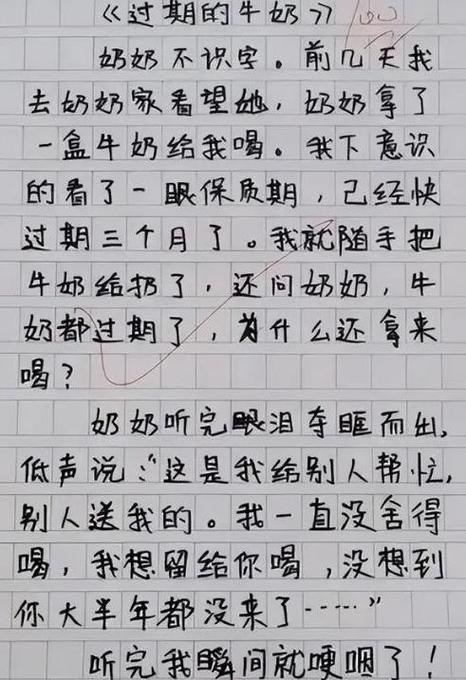 《过期的牛奶》100
奶奶不识字。前几天我
去奶奶家看望她，奶奶拿了
一盒牛奶给我喝。我下意识
的看了一眼保质期，已经快
过期三个月了。我就随手把
牛奶给扔了，还问奶奶，牛
奶都过期了，为什么还拿来
喝？
奶奶听完眼泪夺眶而出，
低声说：“这是我给别人帮忙，
别人送我的。我一直没舍得
喝，我想留给你喝，没想到
你大半年都没来了……”
听完我瞬间就哽咽了！